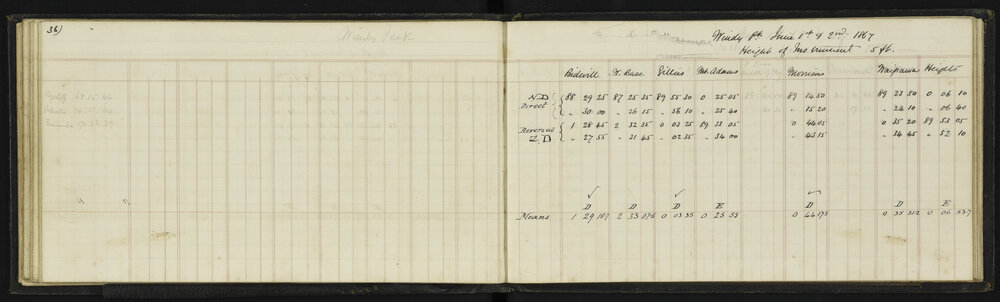 36)
Windy Peak
Windy Pk June 1st & 2nd 1867
Height of Instrument 5 ft.
Bidwill W. Base Gillies Mt. Adams Morrison Waipawa Heights
N.D 88 29 25 87 25 35 89 55 30 0 25 05 89 14 50 89 23 50 0 06 10
Direct " 30 00 " 26 15 " 56 10 " 25 40 " 15 20 " 24 10 " 06 40
Reversed 1 28 45 2 32 35 0 03 25 89 33 05 0 44 05 0 35 20 89 53 05
Z.D. " 27 55 " 31 45 " 02 35 " 34 00 " 43 15 " 34 45 " 52 10
✓ ✓ ✓
D D D E D D E
Means 1 29 187 2 33 075 0 03 35 0 25 55 0 44 175 0 35 312 0 06 537